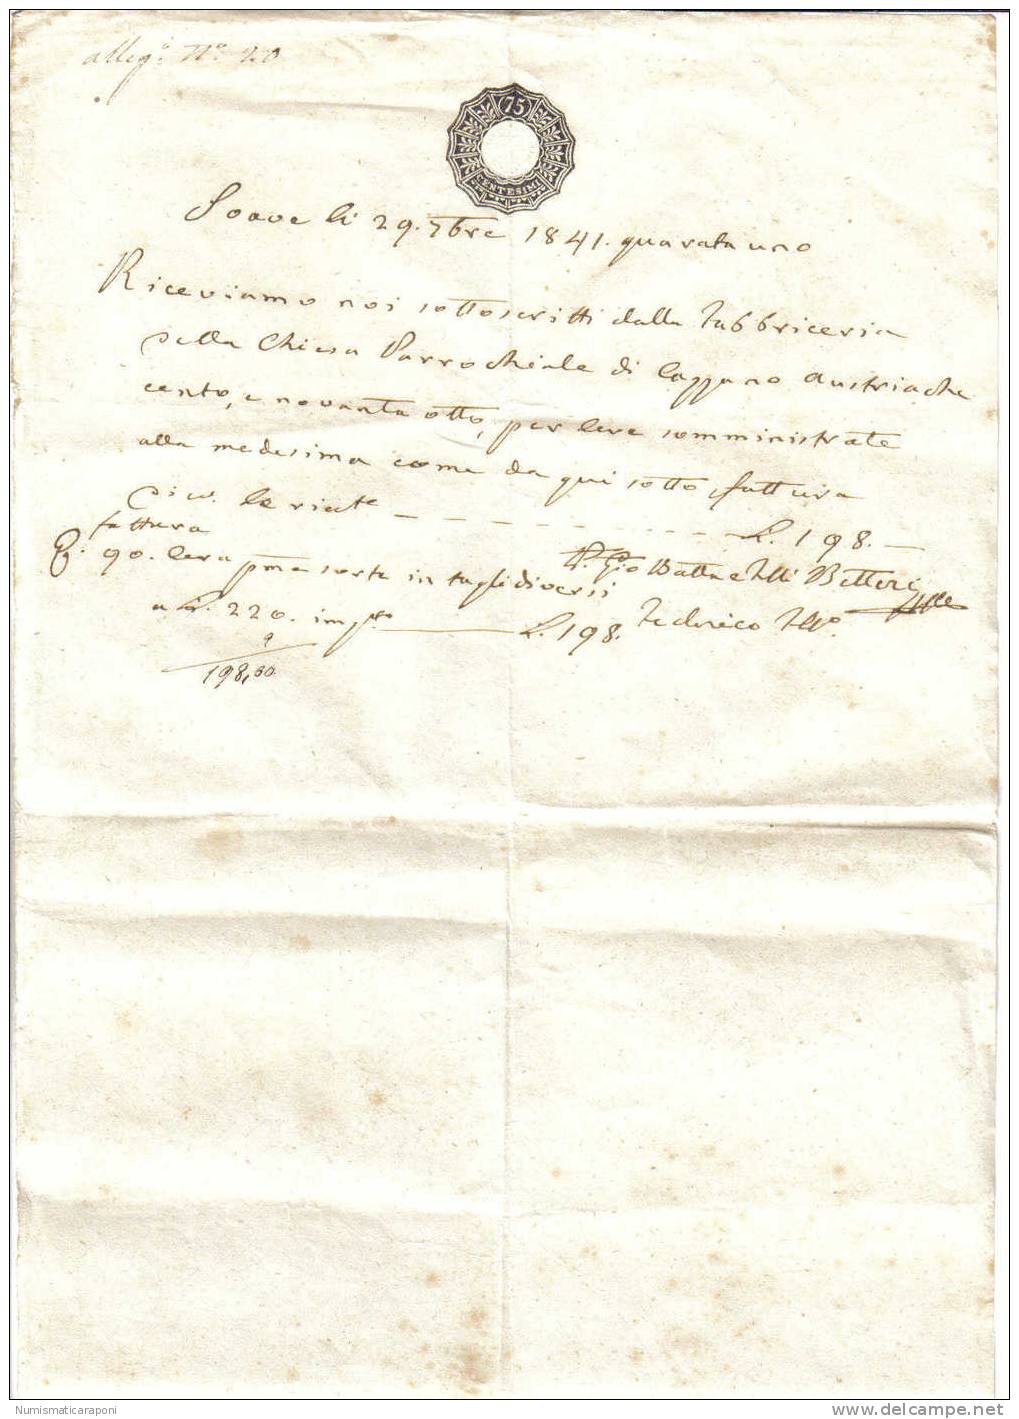 alleg.o N.o 20
75
CENTESIMI
Soave li 29. 7bre 1841. quaratauno
Riceviamo noi sottoscritti dalla Fabbriceria
della Chiesa Parrochiale di Cazzano Austriache
cento, e novanta otto, per cere somministrate
alla medesima come da qui sotto fattura
L. 198.
fattura
90. cera pma sorte in tagli diversi
a L. 220. impto L. 198.
9
198,00
Gio Batta e Flli Betteri
Federico
Numismaticaraponi
delcampe.net